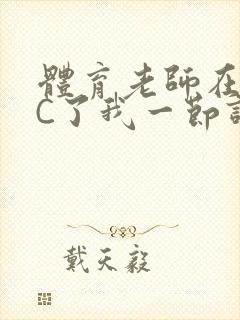 體育老師在
C了我一節
戴天毅